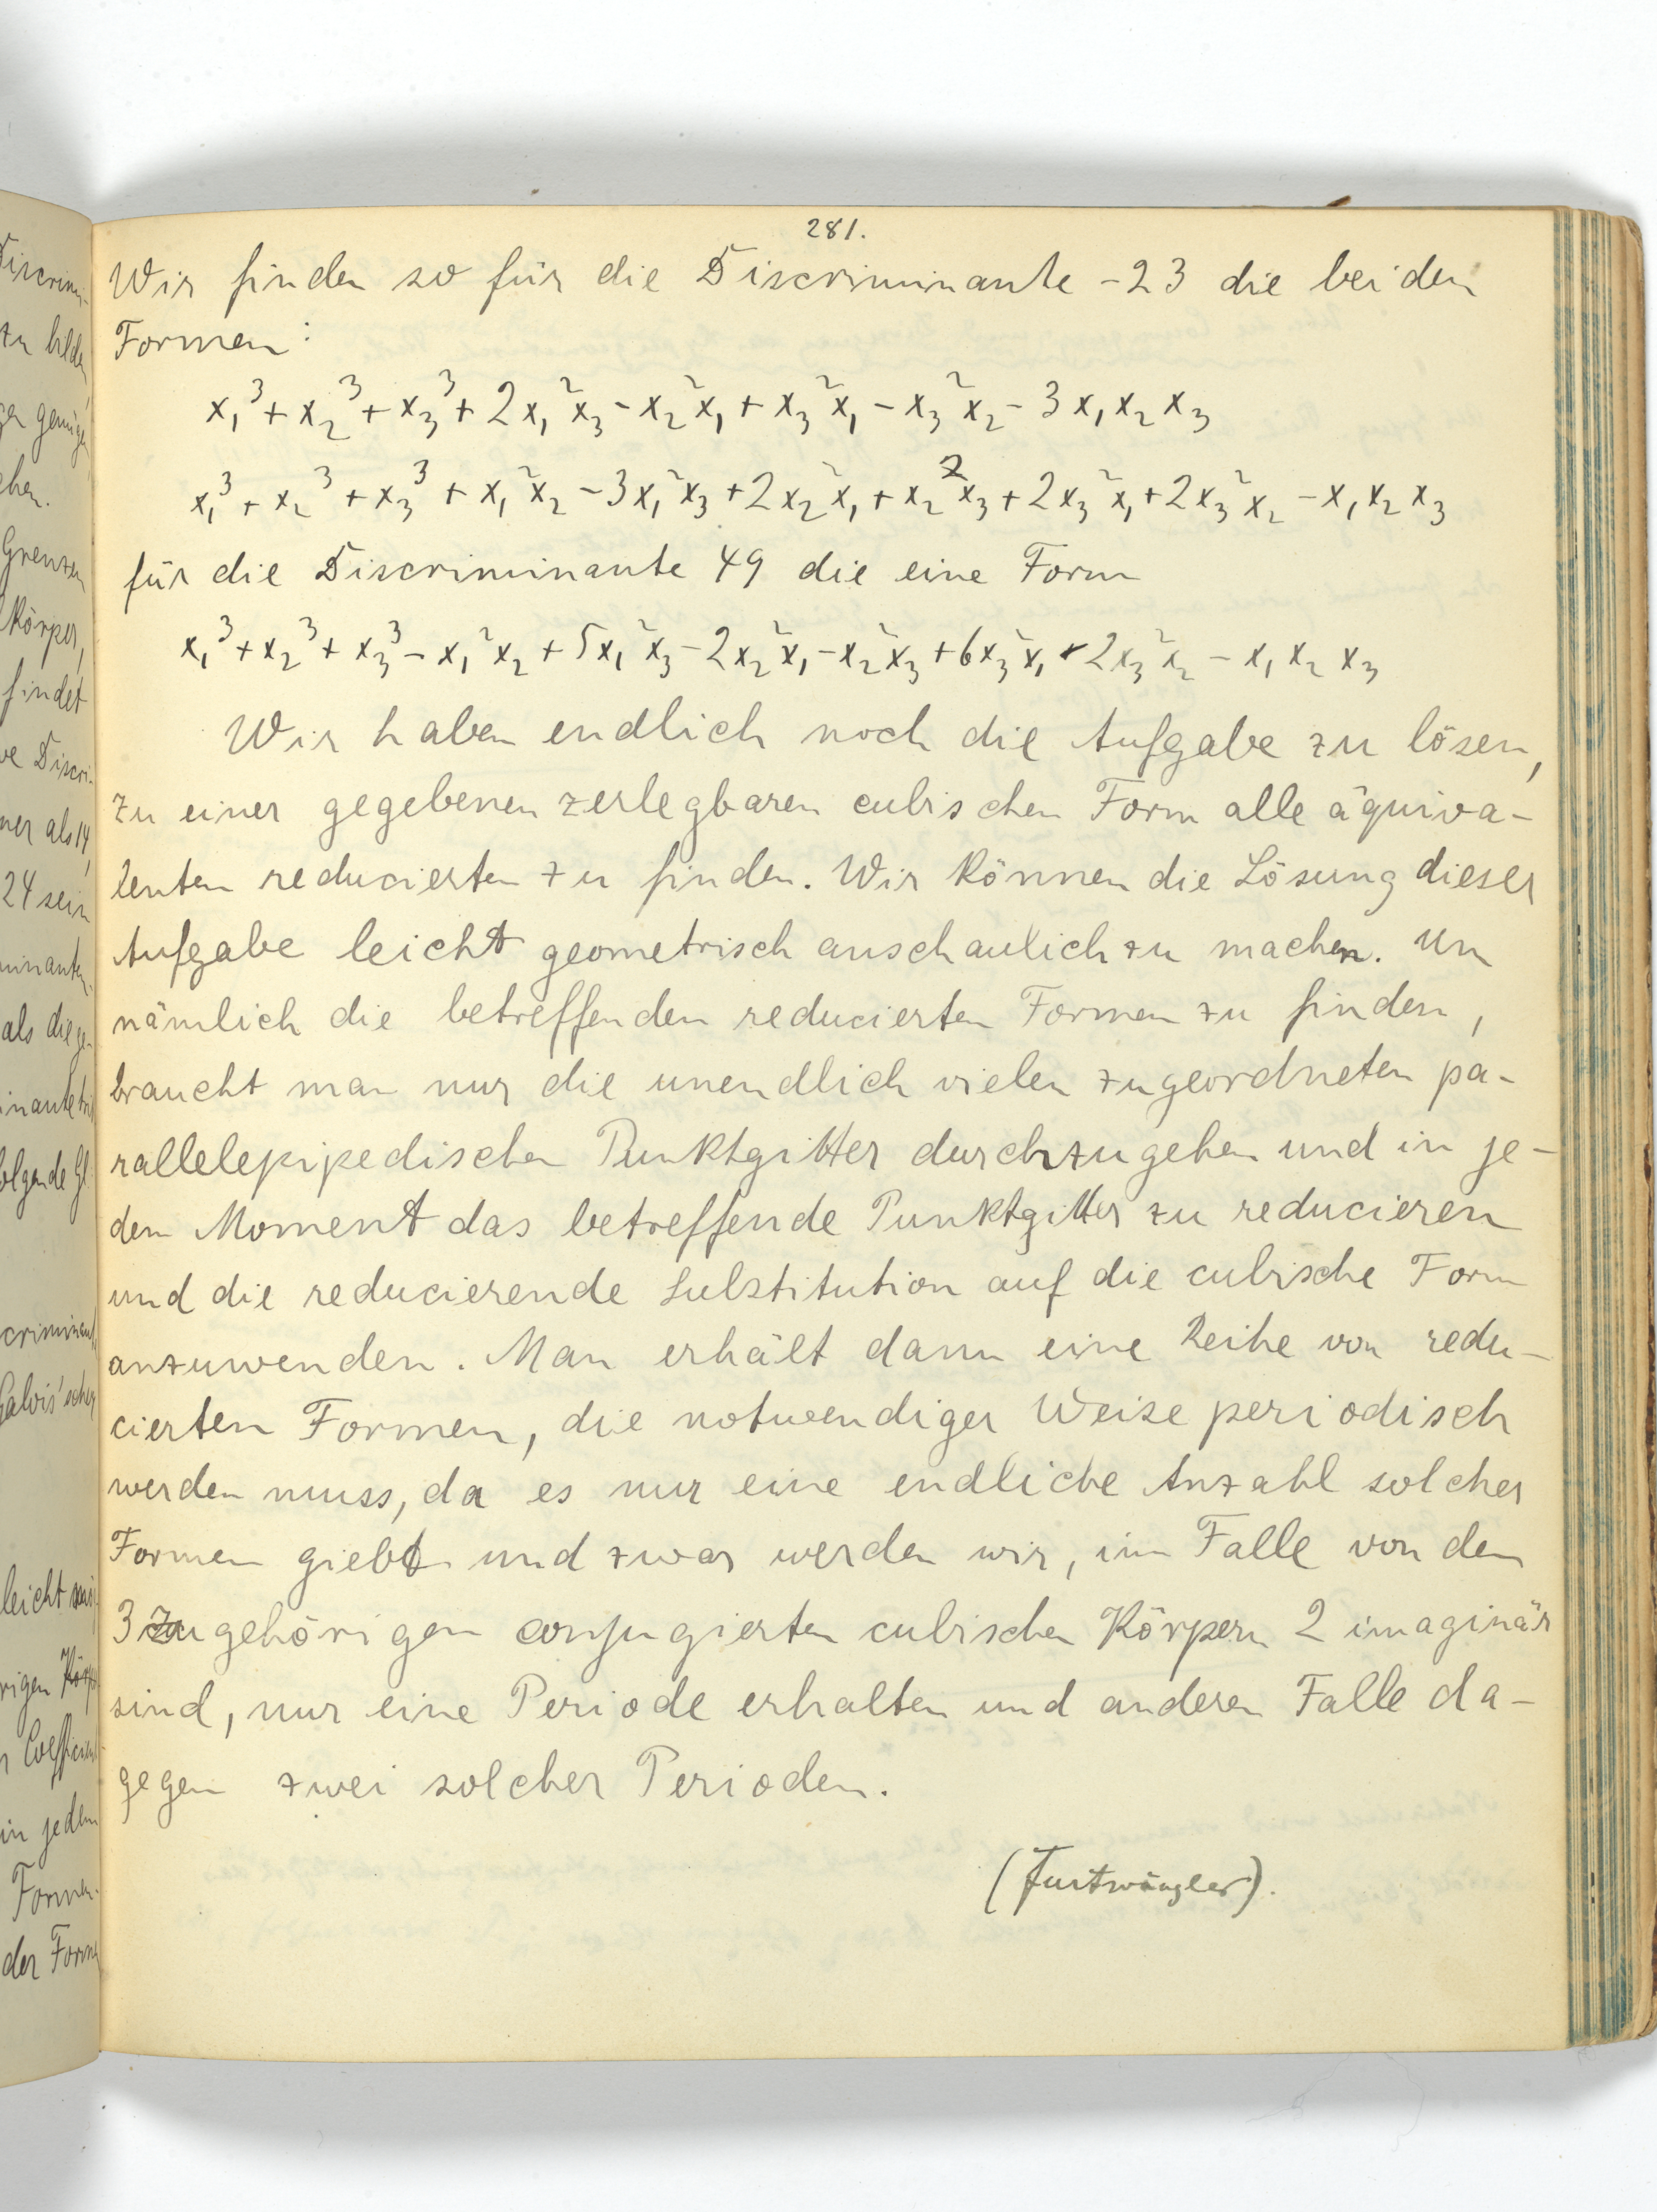 281.
Wir finden so für die Discriminante -23 die beiden
Formen:
x₁³ + x₂³ + x₃³ + 2x₁²x₃ - x₂²x₁ + x₃²x₁ - x₃²x₂ - 3x₁x₂x₃
x₁³ + x₂³ + x₃³ + x₁²x₂ - 3x₁²x₃ + 2x₂²x₁ + x₂²x₃ + 2x₃²x₁ + 2x₃²x₂ - x₁x₂x₃
für die Discriminante 49 die eine Form
x₁³ + x₂³ + x₃³ - x₁²x₂ + 5x₁²x₃ - 2x₂²x₁ - x₂²x₃ + 6x₃²x₁ - 2x₃²x₂ - x₁x₂x₃
Wir haben endlich noch die Aufgabe zu lösen,
zu einer gegebenen zerlegbaren cubischen Form alle äquiva-
lenten reducierten zu finden. Wir können die Lösung dieser
Aufgabe leicht geometrisch anschaulich zu machen. Um
nämlich die betreffenden reducierten Formen zu finden,
braucht man nur die unendlich vielen zugeordneten pa-
rallelepipedischen Punktgitter durchzugehen und in je-
dem Moment das betreffende Punktgitter zu reducieren
und die reducierende Substitution auf die cubische Form
anzuwenden. Man erhält dann eine Reihe von redu-
cierten Formen, die notwendiger Weise periodisch
werden muss, da es nur eine endliche Anzahl solcher
Formen giebt und zwar werden wir, im Falle von den
3 zugehörigen conjugierten cubischen Körpern 2 imaginär
sind, nur eine Periode erhalten und anderen Falle da-
gegen zwei solcher Perioden.
(Furtwängler).
Discrimi-
zu bilde
chen.
Grenzen
Körper,
findet
ve Discri-
ner als 14,
24 sein
minanten
als die ge-
inante
olgende Gl
criminant
Galois'schen
leicht
rigen
Coefficient
in jedem
Formen.
der Forme